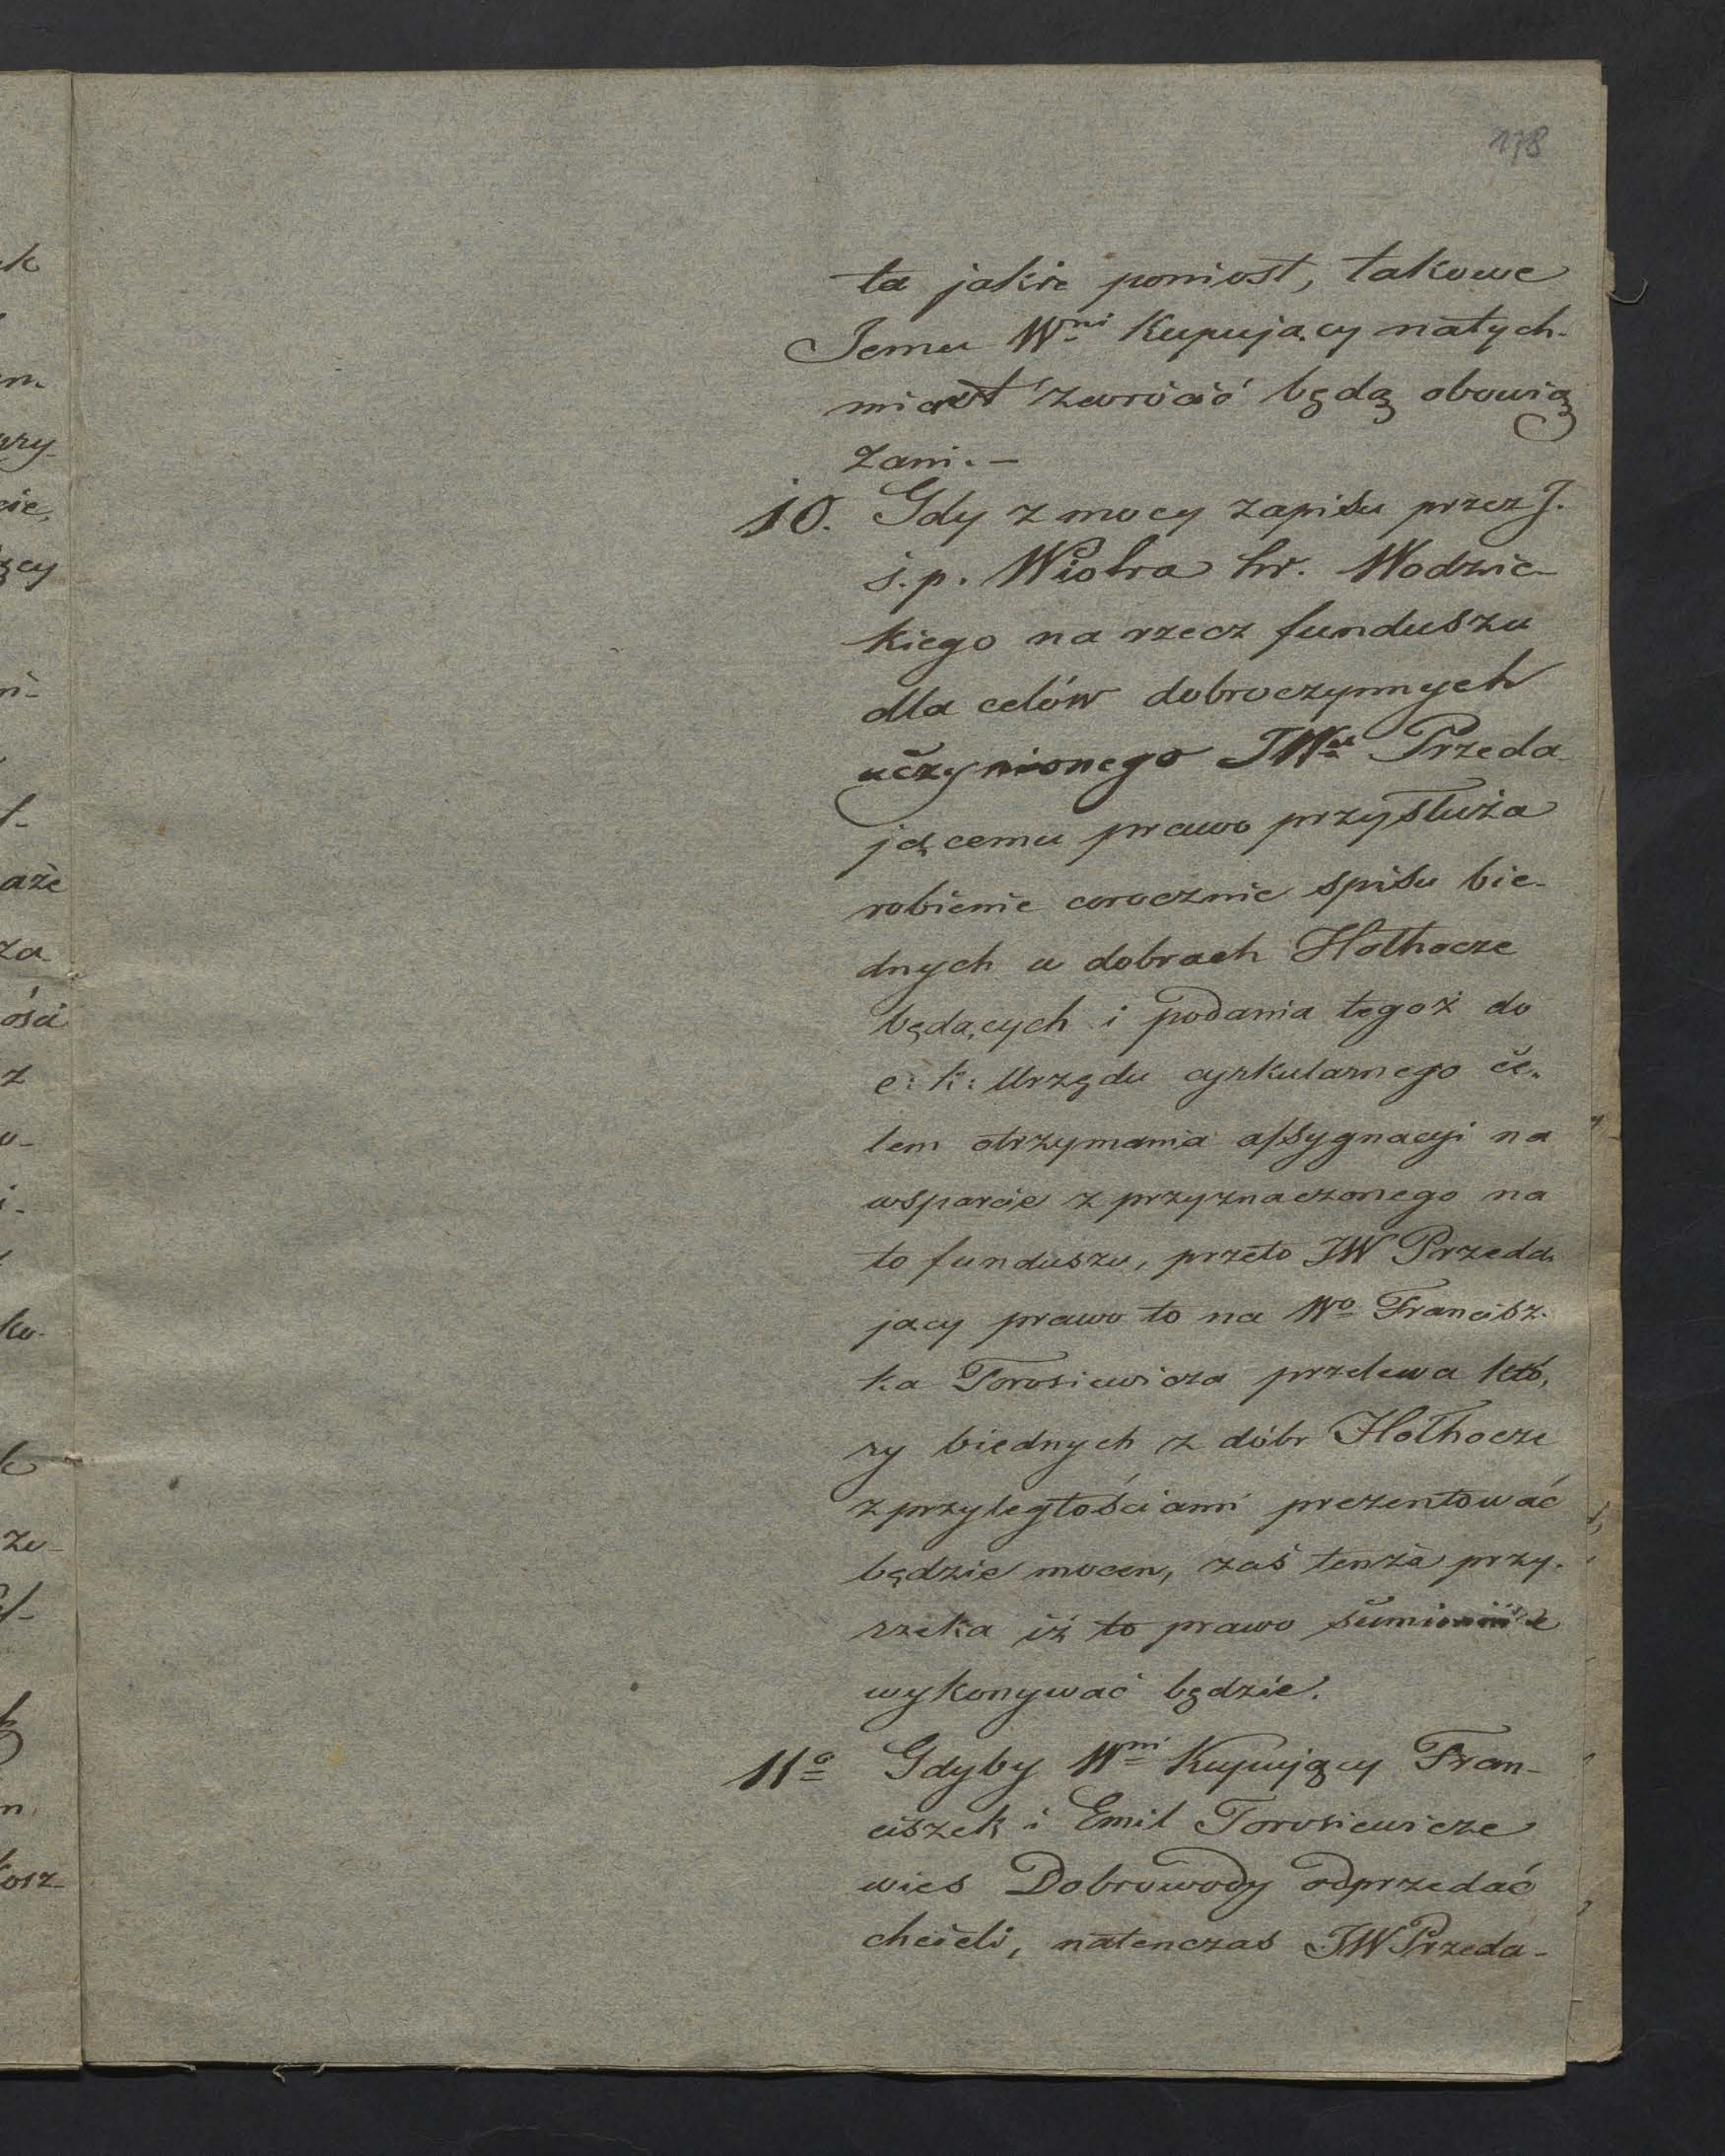 178
ta jakie poniosł, takowe
Jemu Wni Kupujący natych-
miast zwrócić będą obowią
zani. —
10. Gdy z mocy zapisu przez J.
ś. p. Piotra hr. Wodzic-
kiego na rzecz funduszu
dla celów dobroczynnych
uczynionego JWu Przeda-
jącemu prawo przysłuża
robienie corocznie spisu bie-
dnych w dobrach Hołhocze
będących i podania tegoż do
c: k: Urzędu cyrkularnego ce-
lem otrzymania assygnacyi na
wsparcie z przyznaczonego na
to funduszu, przeto JW Przeda-
jacy prawo to na Wo Francisz-
ka Torosiewicza przelewa któ,
ry biednych z dóbr Hołhocze
z przyległościami prezentować
będzie mocen, zaś tenże przy-
rzeka iż to prawo sumiennie
wykonywać będzie.
11o Gdyby Wni Kupujący Fran-
ciszek i Emil Torosiewicze
wieś Dobrowody odprzedać
chcieli, natenczas JW Przeda-